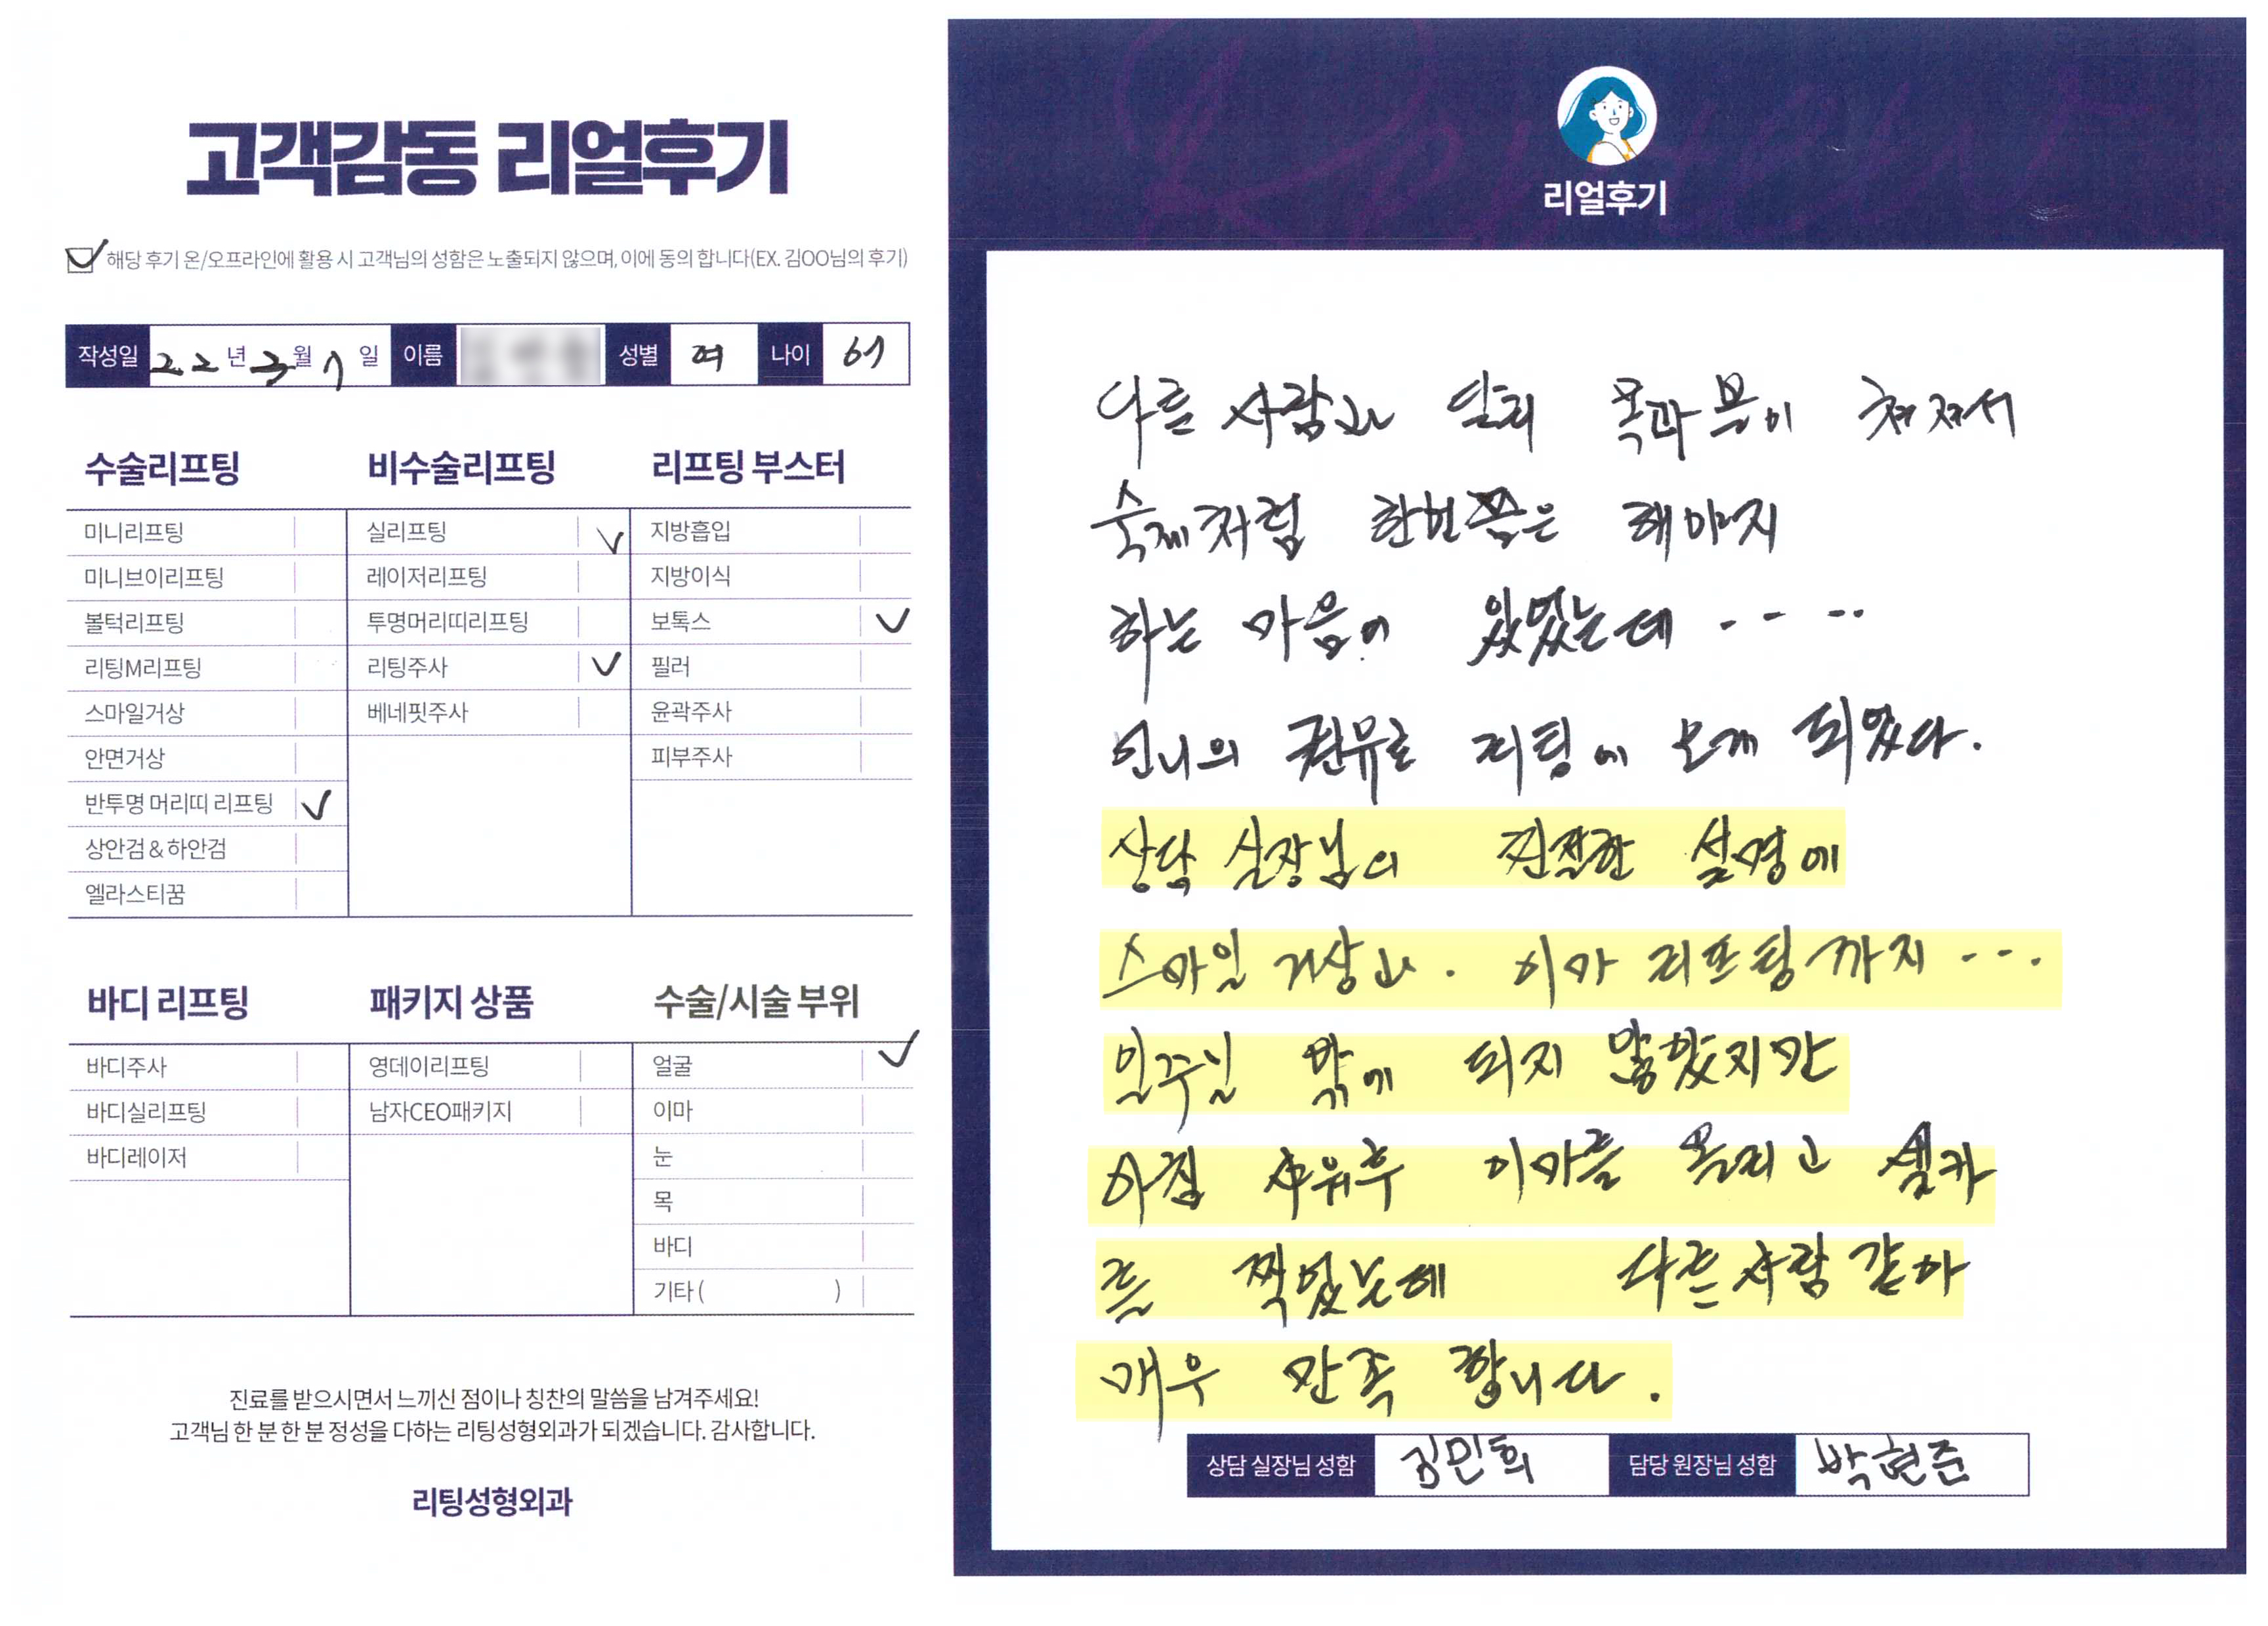 고객감동 리얼후기
해당 후기 온/오프라인에 활용 시 고객님의 성함은 노출되지 않으며, 이에 동의 합니다(EX. 김OO님의 후기)
작성일 22년 3월 7일 이름 성별 여 나이 61
수술리프팅
미니리프팅
미니브이리프팅
볼턱리프팅
리팅M리프팅
스마일거상
안면거상
반투명 머리띠 리프팅
상안검&하안검
엘라스티꿈
비수술리프팅
실리프팅
레이저리프팅
투명머리띠리프팅
리팅주사
베네핏주사
리프팅 부스터
지방흡입
지방이식
보톡스
필러
윤곽주사
피부주사
바디 리프팅
바디주사
바디실리프팅
바디레이저
패키지 상품
영데이리프팅
남자CEO패키지
수술/시술 부위
얼굴
이마
눈
목
바디
기타 ( )
진료를 받으시면서 느끼신 점이나 칭찬의 말씀을 남겨주세요!
고객님 한 분 한 분 정성을 다하는 리팅성형외과가 되겠습니다. 감사합니다.
리팅성형외과
리얼후기
다른 사람과 달리 목과 볼이 쳐져서
숙제처럼 한번쯤은 해야지
하는 마음이 있었는데 ....
언니의 권유로 리팅에 오게 되었다.
상담 실장님의 친절한 설명에
스마일 거상과. 이마 리프팅까지 ...
일주일 밖에 되지 않았지만
아침 샤워후 이마를 올리고 셀카
를 찍었는데 다른사람 같아
매우 만족 합니다.
상담 실장님 성함 김민희 담당 원장님 성함 박현준